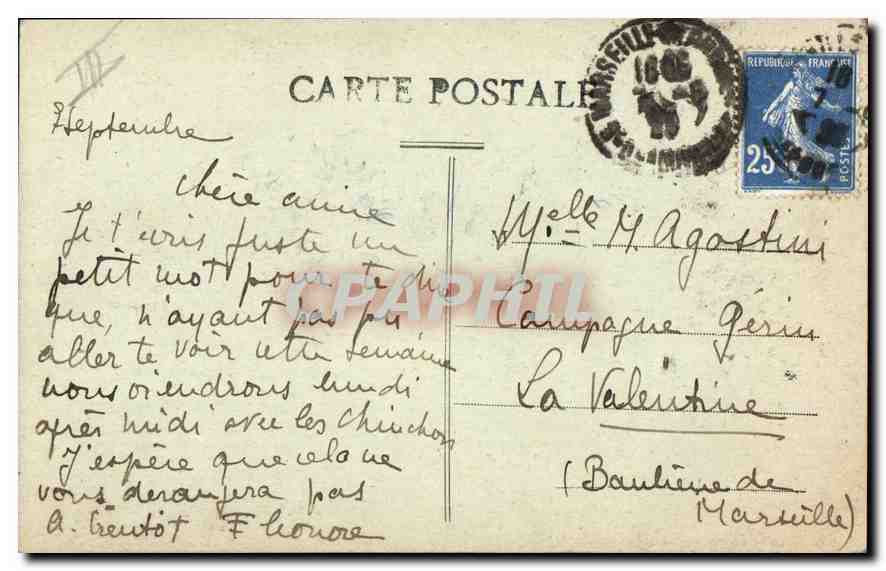 III
CARTE POSTALE
MARSEILLE
REPUBLIQUE FRANÇAISE
25
POSTES
7 Septembre
Chère amie
Je t'écris juste un
petit mot pour te dire
que, n'ayant pas pu
aller te voir cette semaine
nous viendrons lundi
après midi avec les Chinchon
J'espère que cela ne
vous derangera pas
A bientôt F honore
CPAPHIL
Melle M. Agostini
Campagne Gérin
La Valentine
(Banlieue de
Marseille)